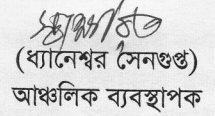 (ধ্যানেশ্বর সেনগুপ্ত)
আঞ্চলিক ব্যবস্থাপক